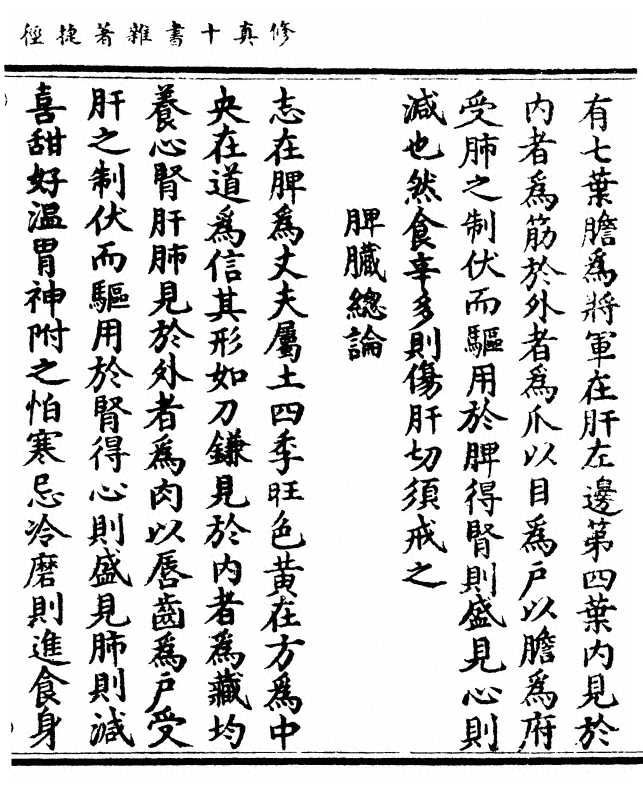 修真十書雜著捷徑
有七葉膽為將軍在肝左邊第四葉內見於
內者為筋於外者為爪以目為戸以膽為府
受肺之制伏而驅用於脾得腎則盛見心則
減也然食辛多則傷肝切須戒之
脾臟總論
志在脾為丈夫屬土四季旺色黃在方為中
央在道為信其形如刀鎌見於內者為藏均
養心腎肝肺見於外者為肉以唇齒為戸受
肝之制伏而驅用於腎得心則盛見肺則減
喜甜好溫胃神附之怕寒忌冷磨則進食身